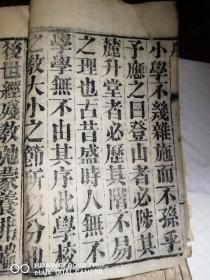 小學不幾雜施而不孫乎
予應之曰登山者必陟其
麓升堂者必歷其階不易
之理也古昔盛時人無不
學學無不由其序此學校
之教大小之節所以分
後世經殘教弛蒙養弗端